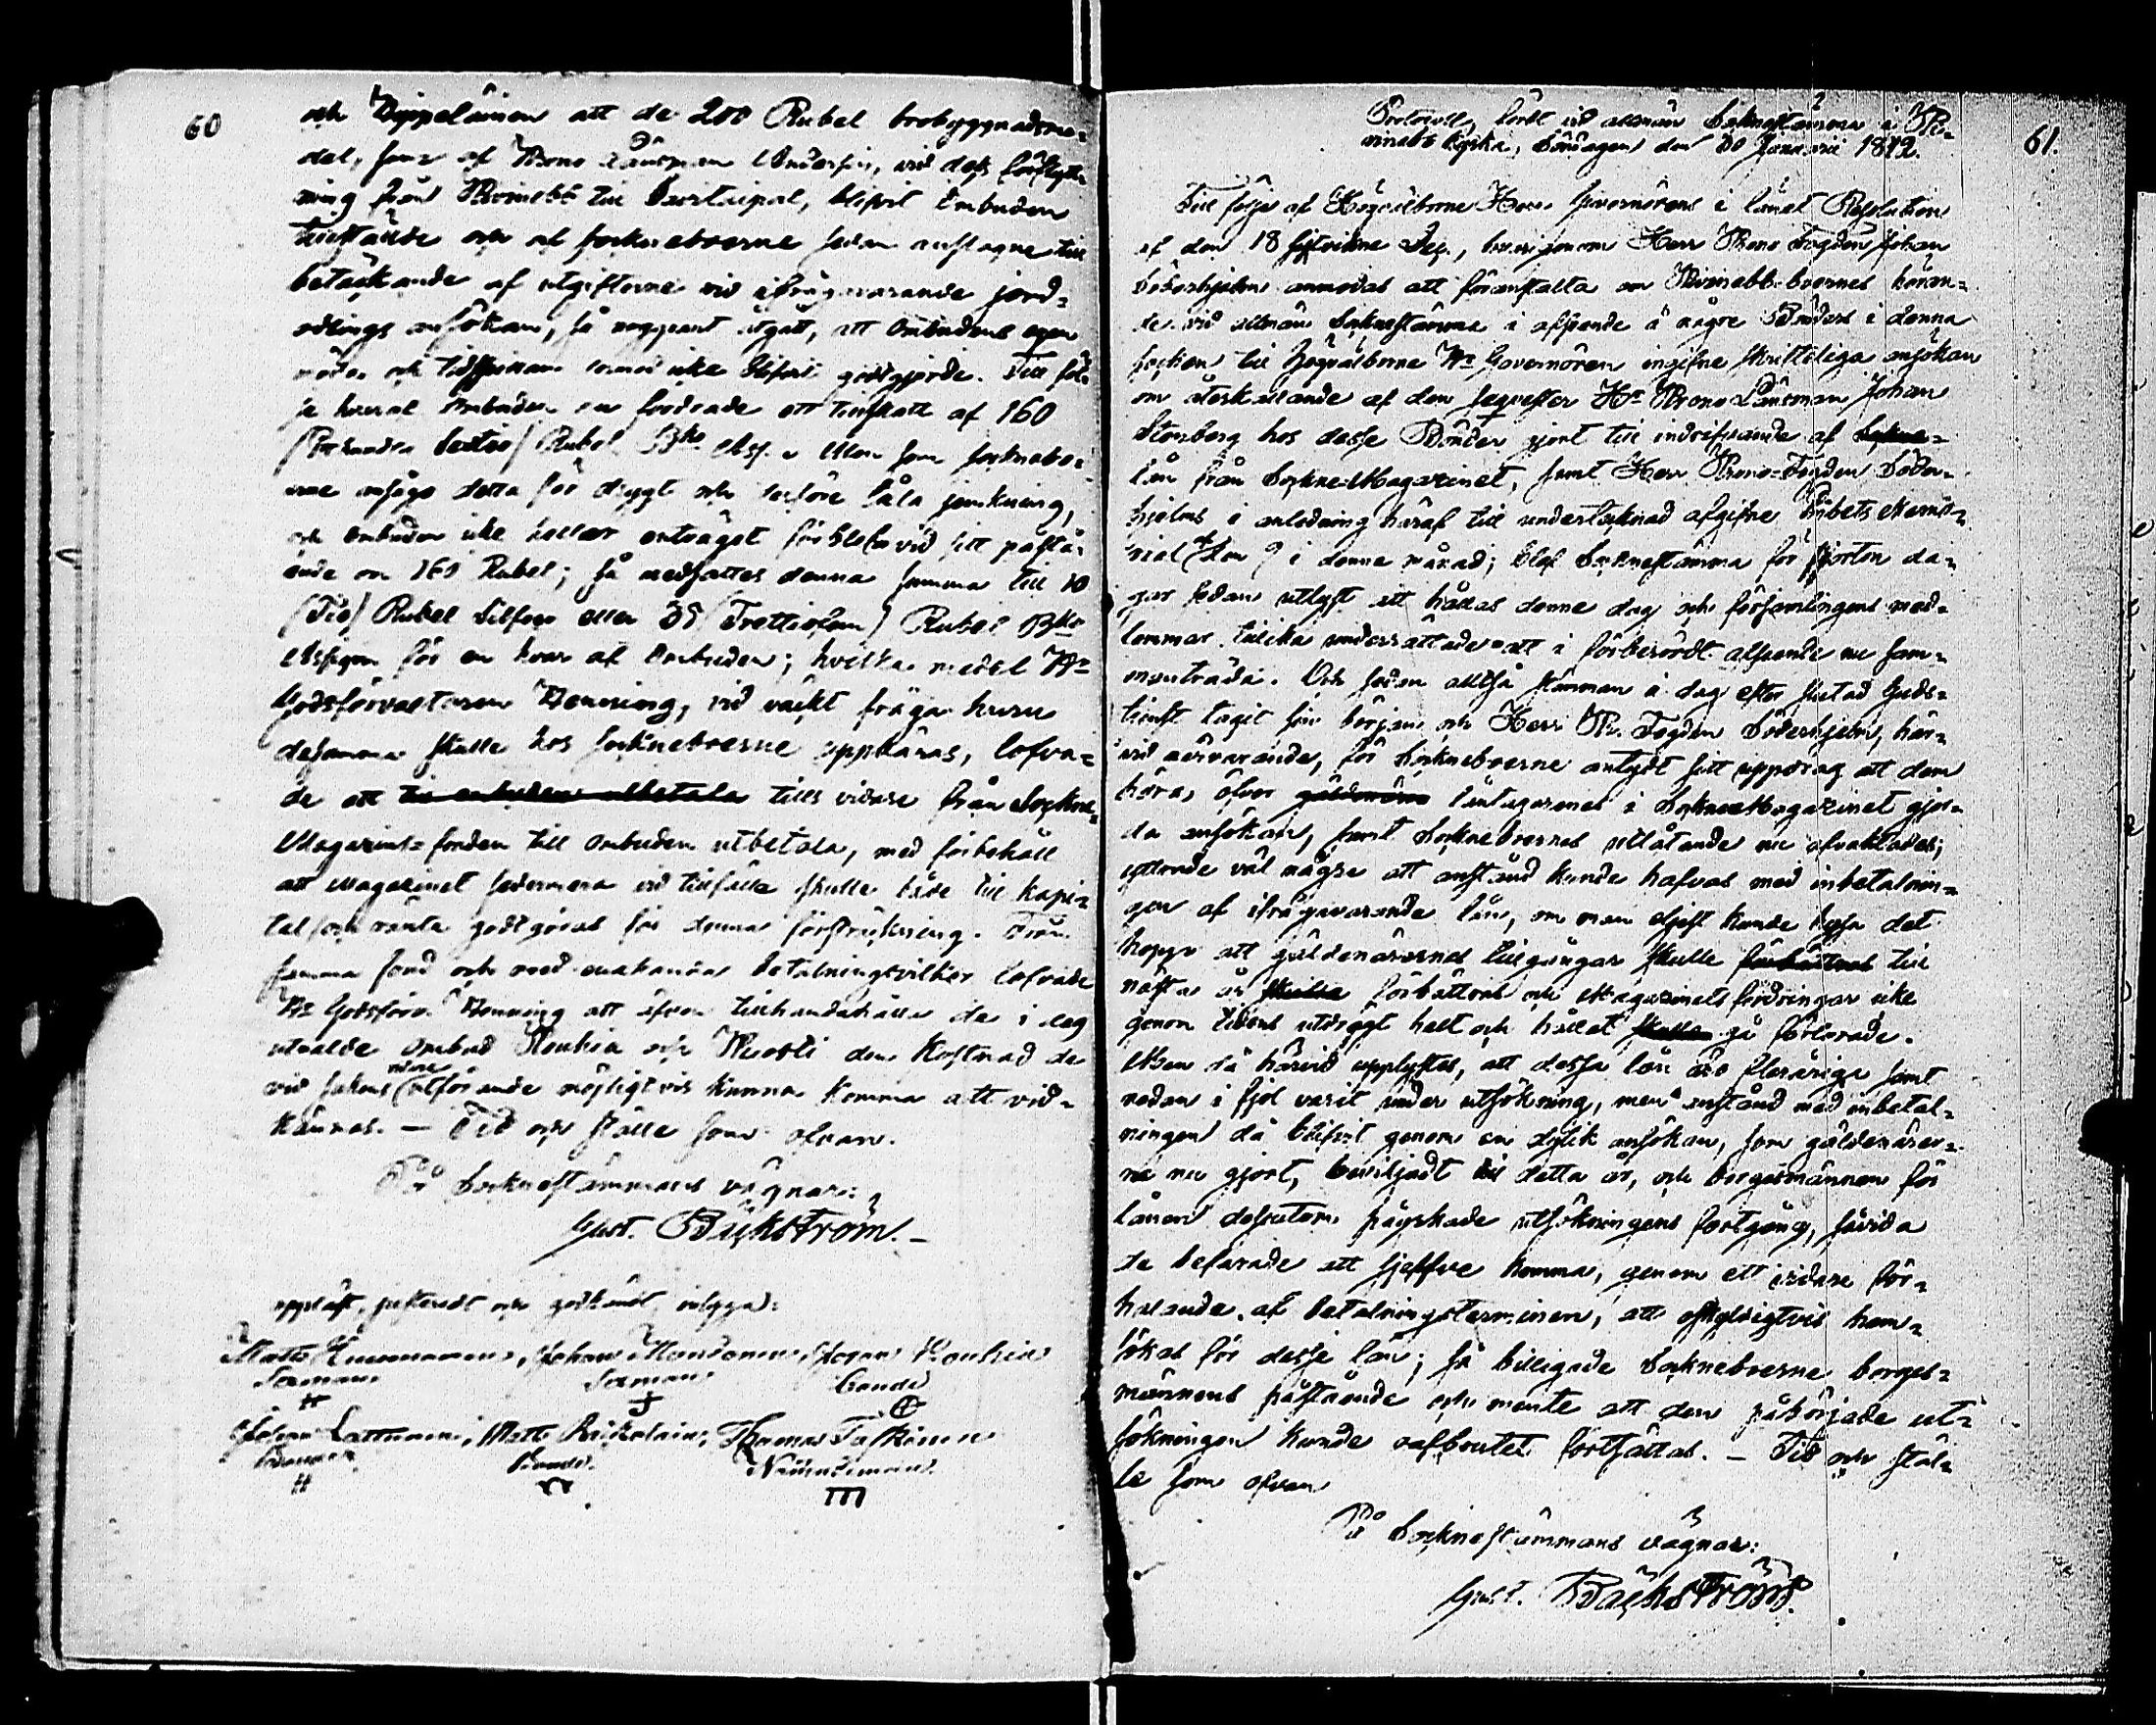 60
och Dyppelämen att de 200 Rubel brobyggnadsme=
del, som af Krono Länsman Andersin, vid dess förflytt=
ning från Kivinebb till Savitaipal, blifvit Ombuden
tillstände och af sockneboerne sedan anslagne till
betäckande af utgifterne vid ifrågavarande jord=
odlings ansökan, så noggrant utgått, att Ombudens egen
möda och tidspillan ännu icke blifvit godtgjorde. Till föl=
je hvaraf Ombuden nu fordrade ett tillskott af 160
(Etthundra Sextio) Rubel Bko Ass. Men som sockneboe=
rne ansågo detta för drygt och derföre tåla jemkning,
och Ombuden icke heller enträget förblefvo vid sitt påstå=
ende om 160 Rubel; så nedsattes denna summa till 10
(Tio) Rubel Silfver eller 35 (Trettiofem) Rubel Bko
Assign. för en hvar af Ombuden; hvilka medel Hr
Godsförvaltaren Henning, vid väckt fråga huru
desamma skulle hos sockneboerne uppbäras, lofva=
de att till ombuden utbetala tills vidare från Sockne=
Magazins=fonden till ombuden utbetala, med förbehåll
att Magazinet sedermera vid tillfälle skulle både till kapi=
tal och ränta godtgöras för denna försträckning. Från
samma fond och med enahanda betalningsvilkor lofvade
Hr Godsförv. Henning att äfven tillhandahålla de i dag
utvalde Ombud Koukia och Kuosti den kostnad de
vid sakens vidare utförande möjligtvis kunna komma att vid=
kännas. — Tid och ställe som ofvan.
På Socknestämmans vägnar:
Gust. Bäckström. –
uppläst, justeradt och godkändt, intyga:
Matts Kuismanen, Johan Mondonen, Johan Koukia
Sexman Sexman bonde
Johan Lattunen, Matts Raikolain, Thomas Talkinen
Sexman Bonde Nämndeman
61.
Protocoll, fördt vid allmän Socknestämma i Ki=
vinebb kyrka, Söndagen den 30 Januarii 1842.
Till följe af Högvälborne Herr Guvernörens i länet Resolution
af den 18 sistvikne Dec., hvarigenom Herr Krono Fogden Johan
Söderhjelm anmodas att föranstalta om Kivinebb-boernes höran=
de vid allmän Socknestämma i afseende å någre Bönders i denna
socken till Högvälborne Hr Governören ingifne skrifteliga ansökan
om återkallande af den sequester Hr Krono Länsman Johan
Stenberg hos desse Bönder gjort till indrifvande af Sockne=
lån från Sockne=Magazinet, samt Herr Krono=Fogden Söder=
hjelms i anledning häraf till undertecknad afgifne Embets Memo=
rial den 9 i denne månad; blef Socknestämma för fjorton da=
gar sedan utlyst att hållas denne dag och församlingens med=
lemmar tillika underrättade att i förberördt afseende nu sam=
manträda. Och sedan alltså stämman i dag efter slutad Guds=
tienst tagit sin början och Herr Kr. Fogden Söderhjelm, här=
vid närvarande, för Sockneboerne antydt sitt uppdrag att dem
höra, öfver gäldenärne låntagarenes i Sockne Magazinet gjor=
da ansökan, samt Sockneboernes utlåtande nu afvaktades;
yttrade väl någre att anstånd kunde hafvas med inbetalnin=
gen af ifrågavarande lån, om man eljest kunde hysa det
hopp att gäldenärernes tillgångar skulle förbättras till
nästa år skulle förbättras och Magazinets fordringar icke
genom tidens utdrägt helt och hållet skulle gå förlorade.
Men då härvid upplystes, att dessa lån äro fleråriga samt
redan i fjol varit under utsökning, men anstånd med inbetal=
ningen då blifvit genom en dylik ansökan, som gäldenärer=
ne nu gjort, beviljadt till detta år, och borgesmännen för
lånen dessutom påyrkade utsökningens fortgång, såvida
de befarade att sjelfve komma, genom ett vidare för=
halande af betalningsterminen, att oskyldigtvis hem=
sökas för desse lån; så billigade Sockneboerne borges=
männens påstående och mente att den påbörjade ut=
sökningen kunde oafbrutet fortsättas. – Tid och stäl=
le som ofvan
På Socknestämmans vägnar:
Gust. Bäckström.